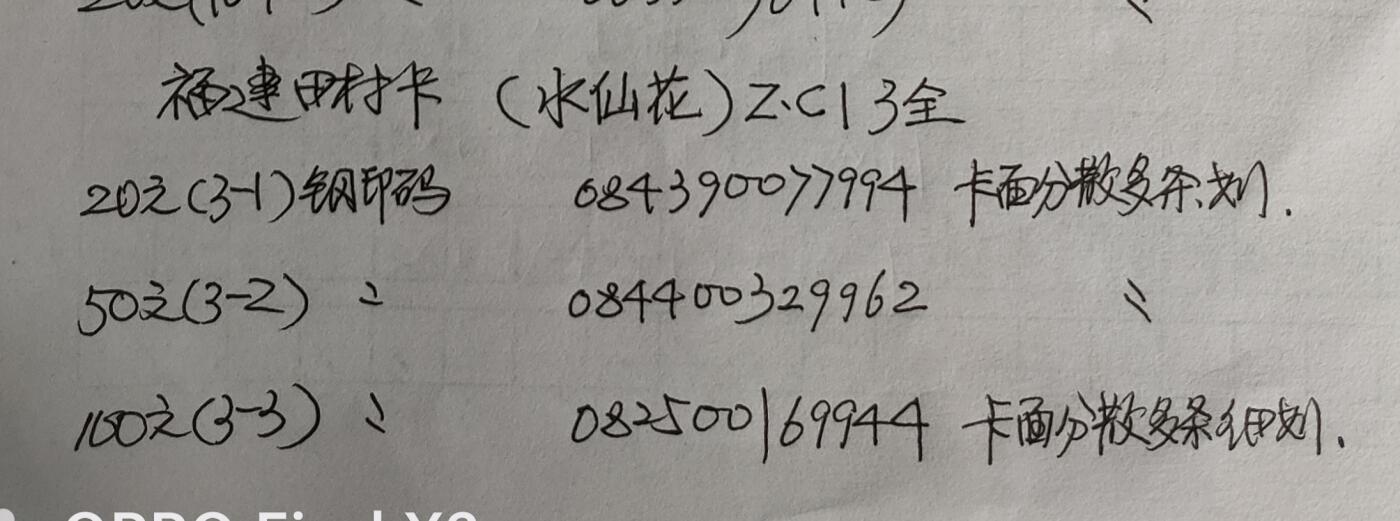 福建田村卡 (水仙花) Z.C13全
20元(3-1)钢印码 084390077994 卡面分散多条划.
50元(3-2) 〃 084400329962 〃
100元(3-3) 〃 082500169944 卡面分散多条细划.